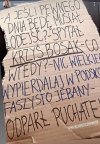 A JEŚLI PEWNEGO
DNIA BĘDĘ MUSIAŁ
ODEJŚĆ? SPYTAŁ
KRZYŚ BOSAK - CO
WTEDY? - NIC WIELKIEGO
WYPIERDALAJ W PODSKOKACH
FASZYSTO JEBANY -
ODPARŁ PUCHATEK